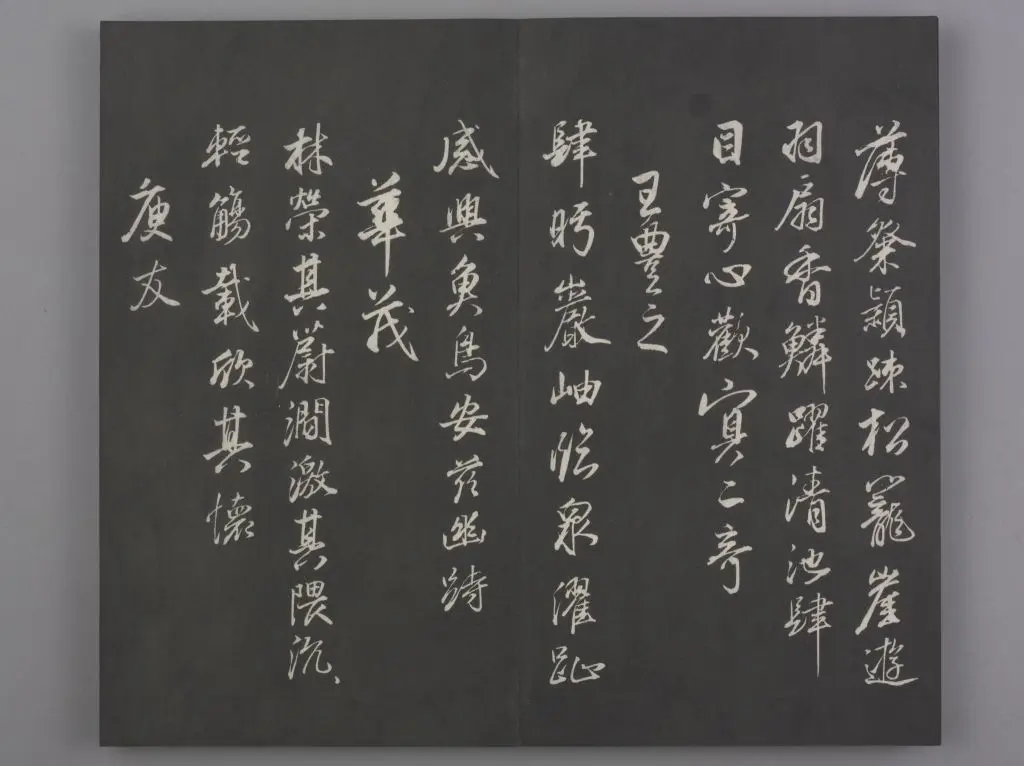 薄粲穎疎松籠崖遊
羽扇香鱗躍清池肆
目寄心歡冥二奇
王豐之
肆眄巖岫臨泉濯趾
感興魚鳥安茲幽跱
華茂
林榮其蔚澗激其隈汎〻
輕觴載欣其懷
庾友